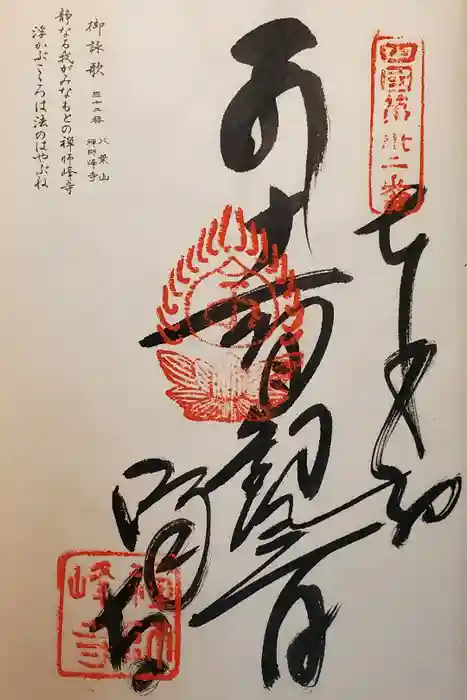 四國第卅二番
奉納
十一面観音
峰寺
禅師
峰寺
御詠歌 三十二番 八葉山
禅師峰寺
静なる我がみなもとの禅師峰寺
浮かぶこころは法のはやぶね